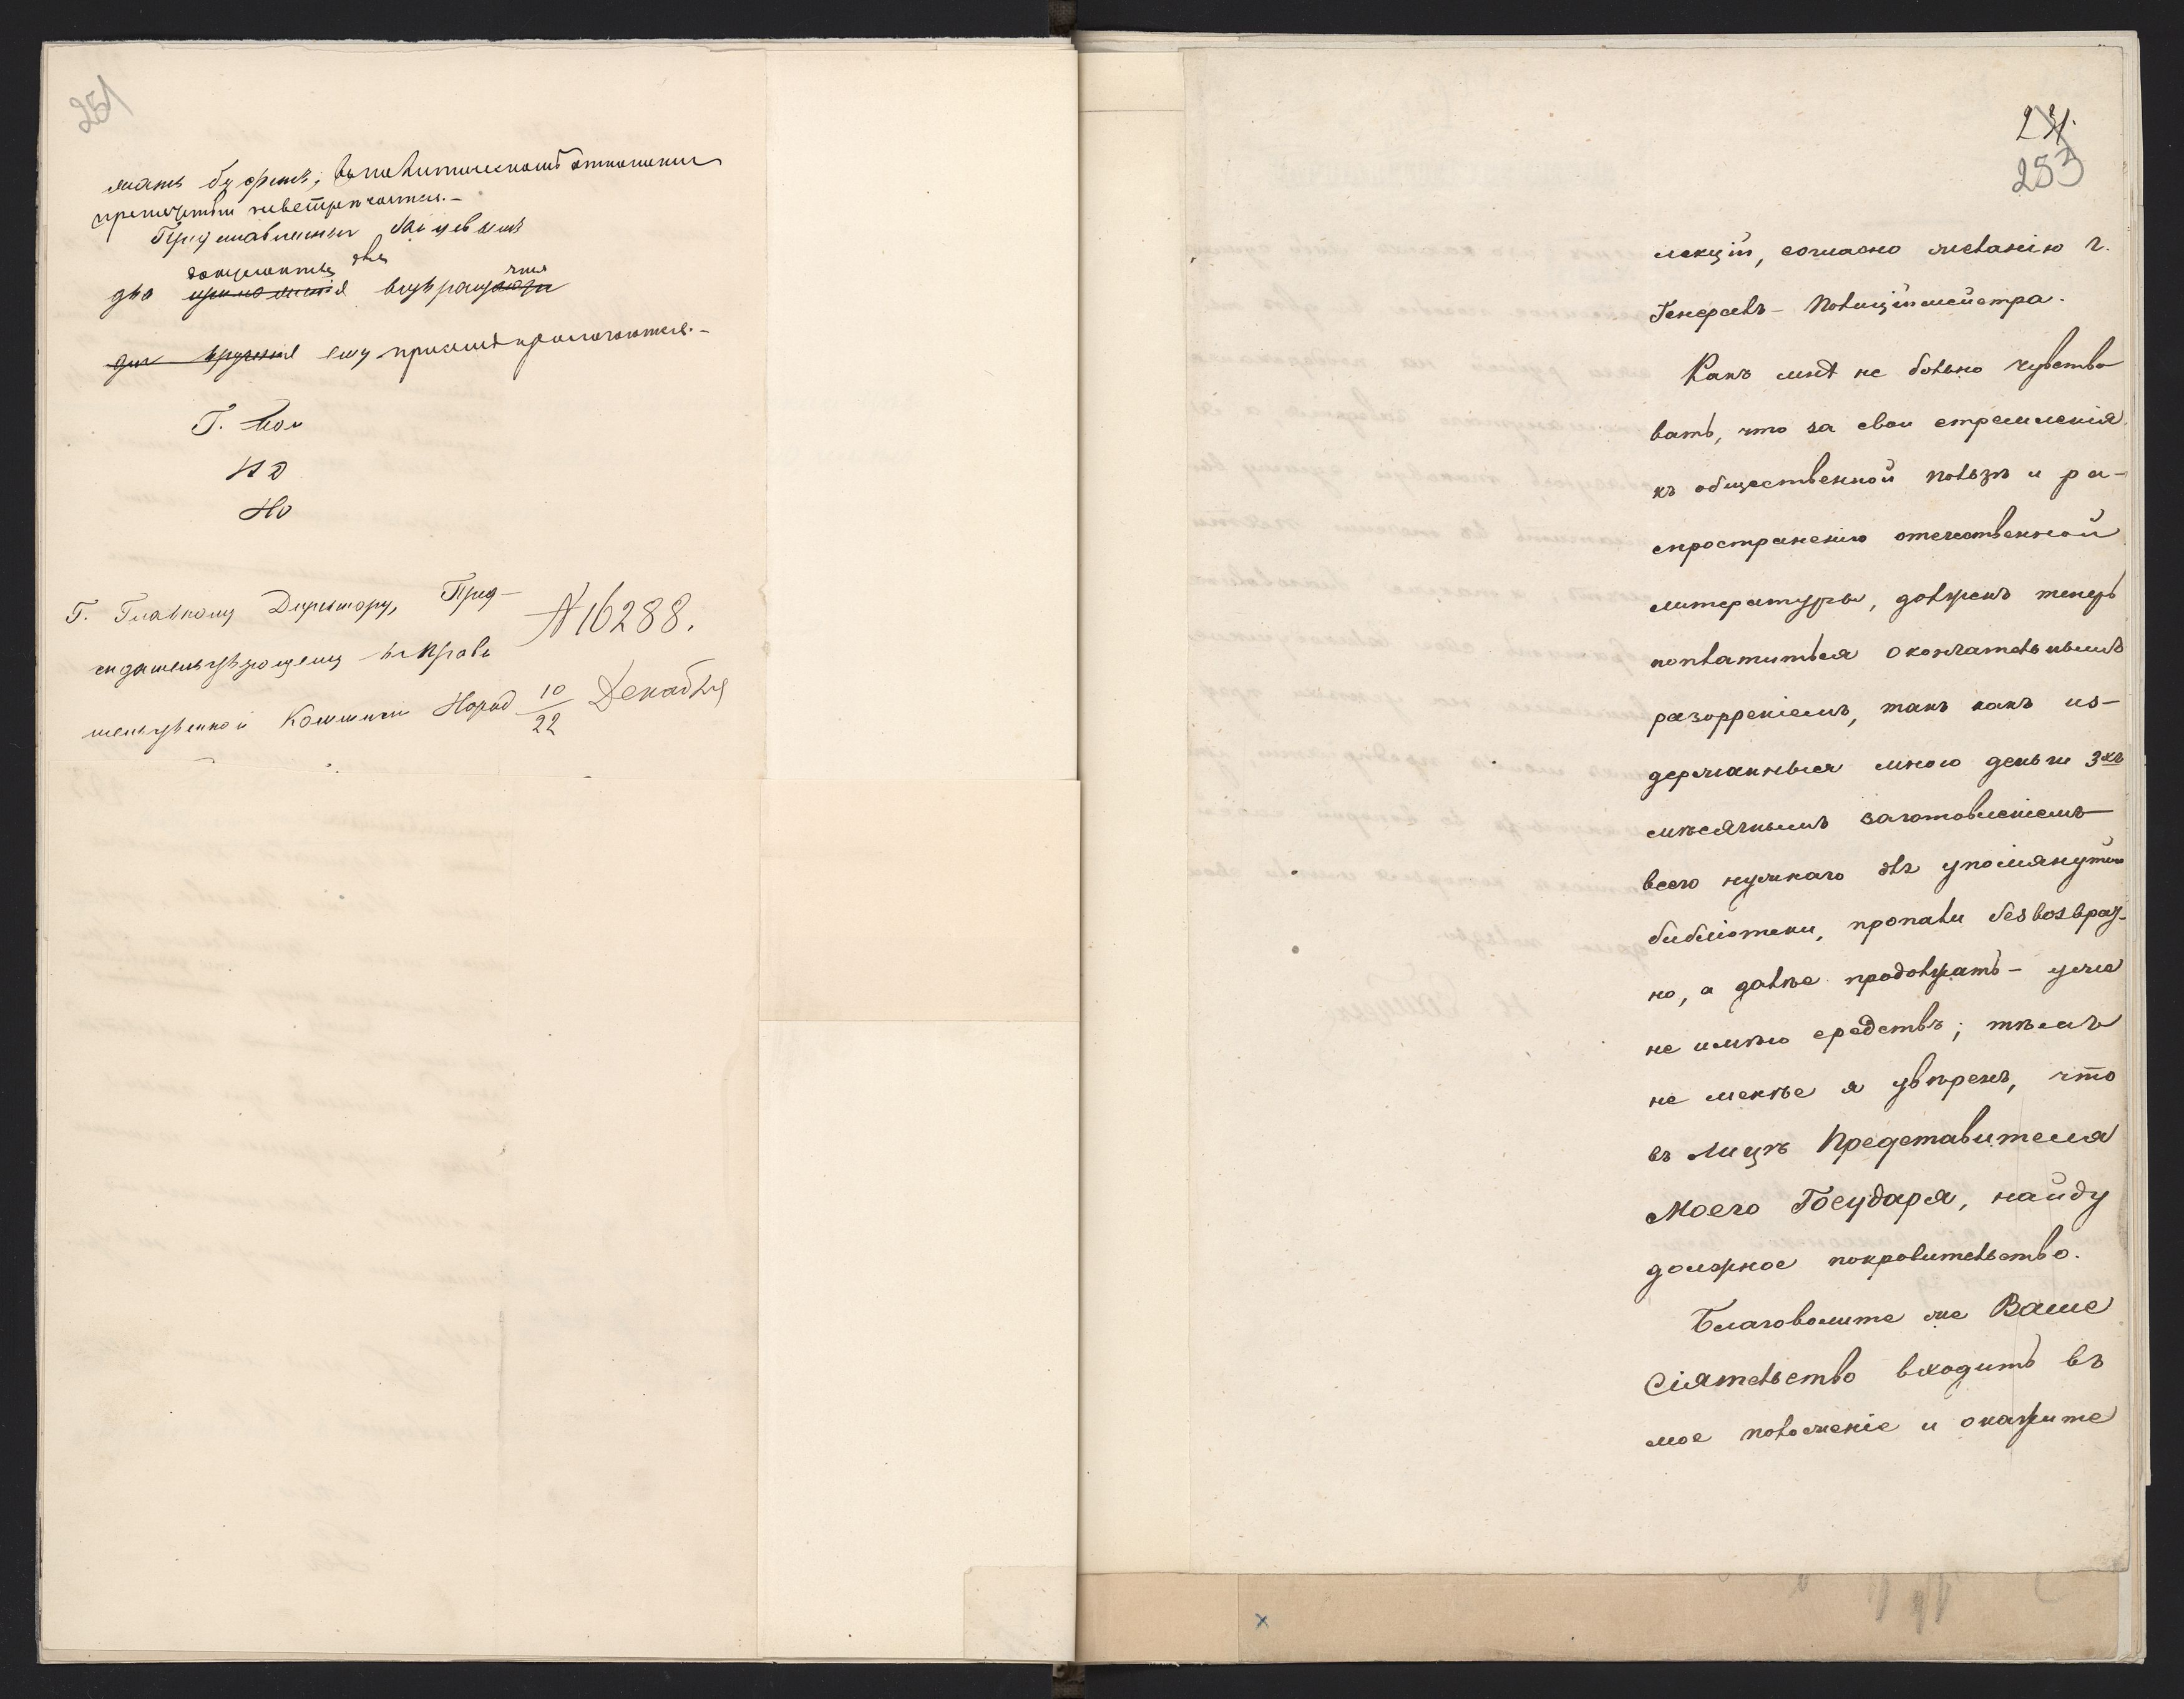 251
жать буфетъ, въ политическомъ отношеніи
препятствій не встрѣчается.-
Представленныя Зайцевымъ
документы для
два возвращ
ему при семъ прилагаются.-
Г. Пол
НО
Но
Г. Главному Директору, Пред-
сѣдательствующему въ Прави
тельственной Коммисіи
№ 16288.
10/22 Декабря
231.
253
лекцій, согласно желанію г.
Генералъ-Полиціймейстра.
Какъ мнѣ не больно чувство
вать, что за свои стремленія
къ общественной пользѣ и ра-
спространенію отечественной
литературы, долженъ теперь
поплатиться окончательнымъ
разорреніемъ, такъ какъ из-
держанныя мною деньги 3хъ
мѣсячнымъ заготовленіемъ
всего нужнаго для упомянутой
библіотеки, пропали безвозврат-
но, а далѣе продолжать - уже
не имѣю средствъ; тѣмъ
не менѣе я увѣренъ, что
въ лицѣ Представителя
Моего Государя, найду
должное покровительство.
Благоволите же Ваше
Сіятельство входить въ
мое положеніе и окажите